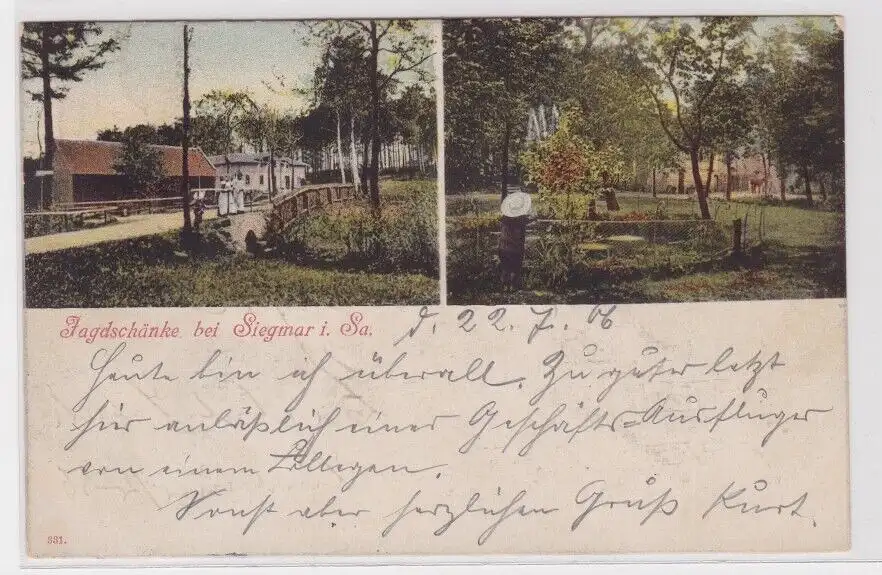 Jagdschänke bei Siegmar i. Sa.
d. 22. 7. 06
Heute bin ich überall. Zu guter letzt
hier anläßlich einer Geschäfts=Ausfluges
von einem Kollegen.
Sonst aber herzlichen Gruß Kurt.
331.